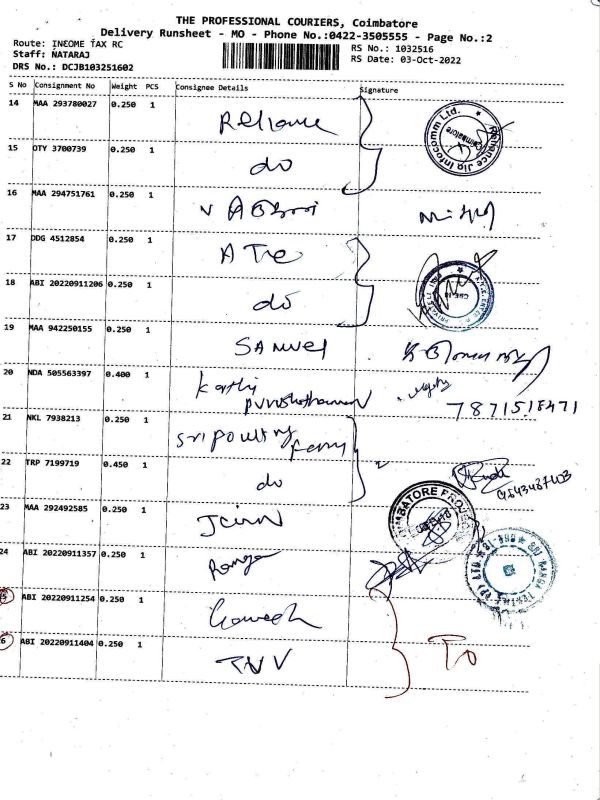 THE PROFESSIONAL COURIERS, Coimbatore
Delivery Runsheet - MO - Phone No.:0422-3505555 - Page No.:2
Route: INCOME TAX RC
Staff: NATARAJ
DRS No.: DCJB103251602
RS No.: 1032516
RS Date: 03-Oct-2022
S No Consignment No Weight PCS Consignee Details Signature
14 MAA 293780027 0.250 1 Reliance
Reliance Jio Infocomm Ltd. Coimbatore
15 OTY 3700739 0.250 1 do
16 MAA 294751761 0.250 1
17 DDG 4512854 0.250 1
18 ABI 20220911206 0.250 1 do
19 MAA 942250155 0.250 1 SAMUEL
20 NDA 505563397 0.400 1
7871518471
21 NKL 7938213 0.250 1 Sri poultry
22 TRP 7199719 0.450 1 do
23 MAA 292492585 0.250 1
24 ABI 20220911357 0.250 1 Ranga
ABI 20220911254 0.250 1
6 ABI 20220911404 0.250 1 TNV
To